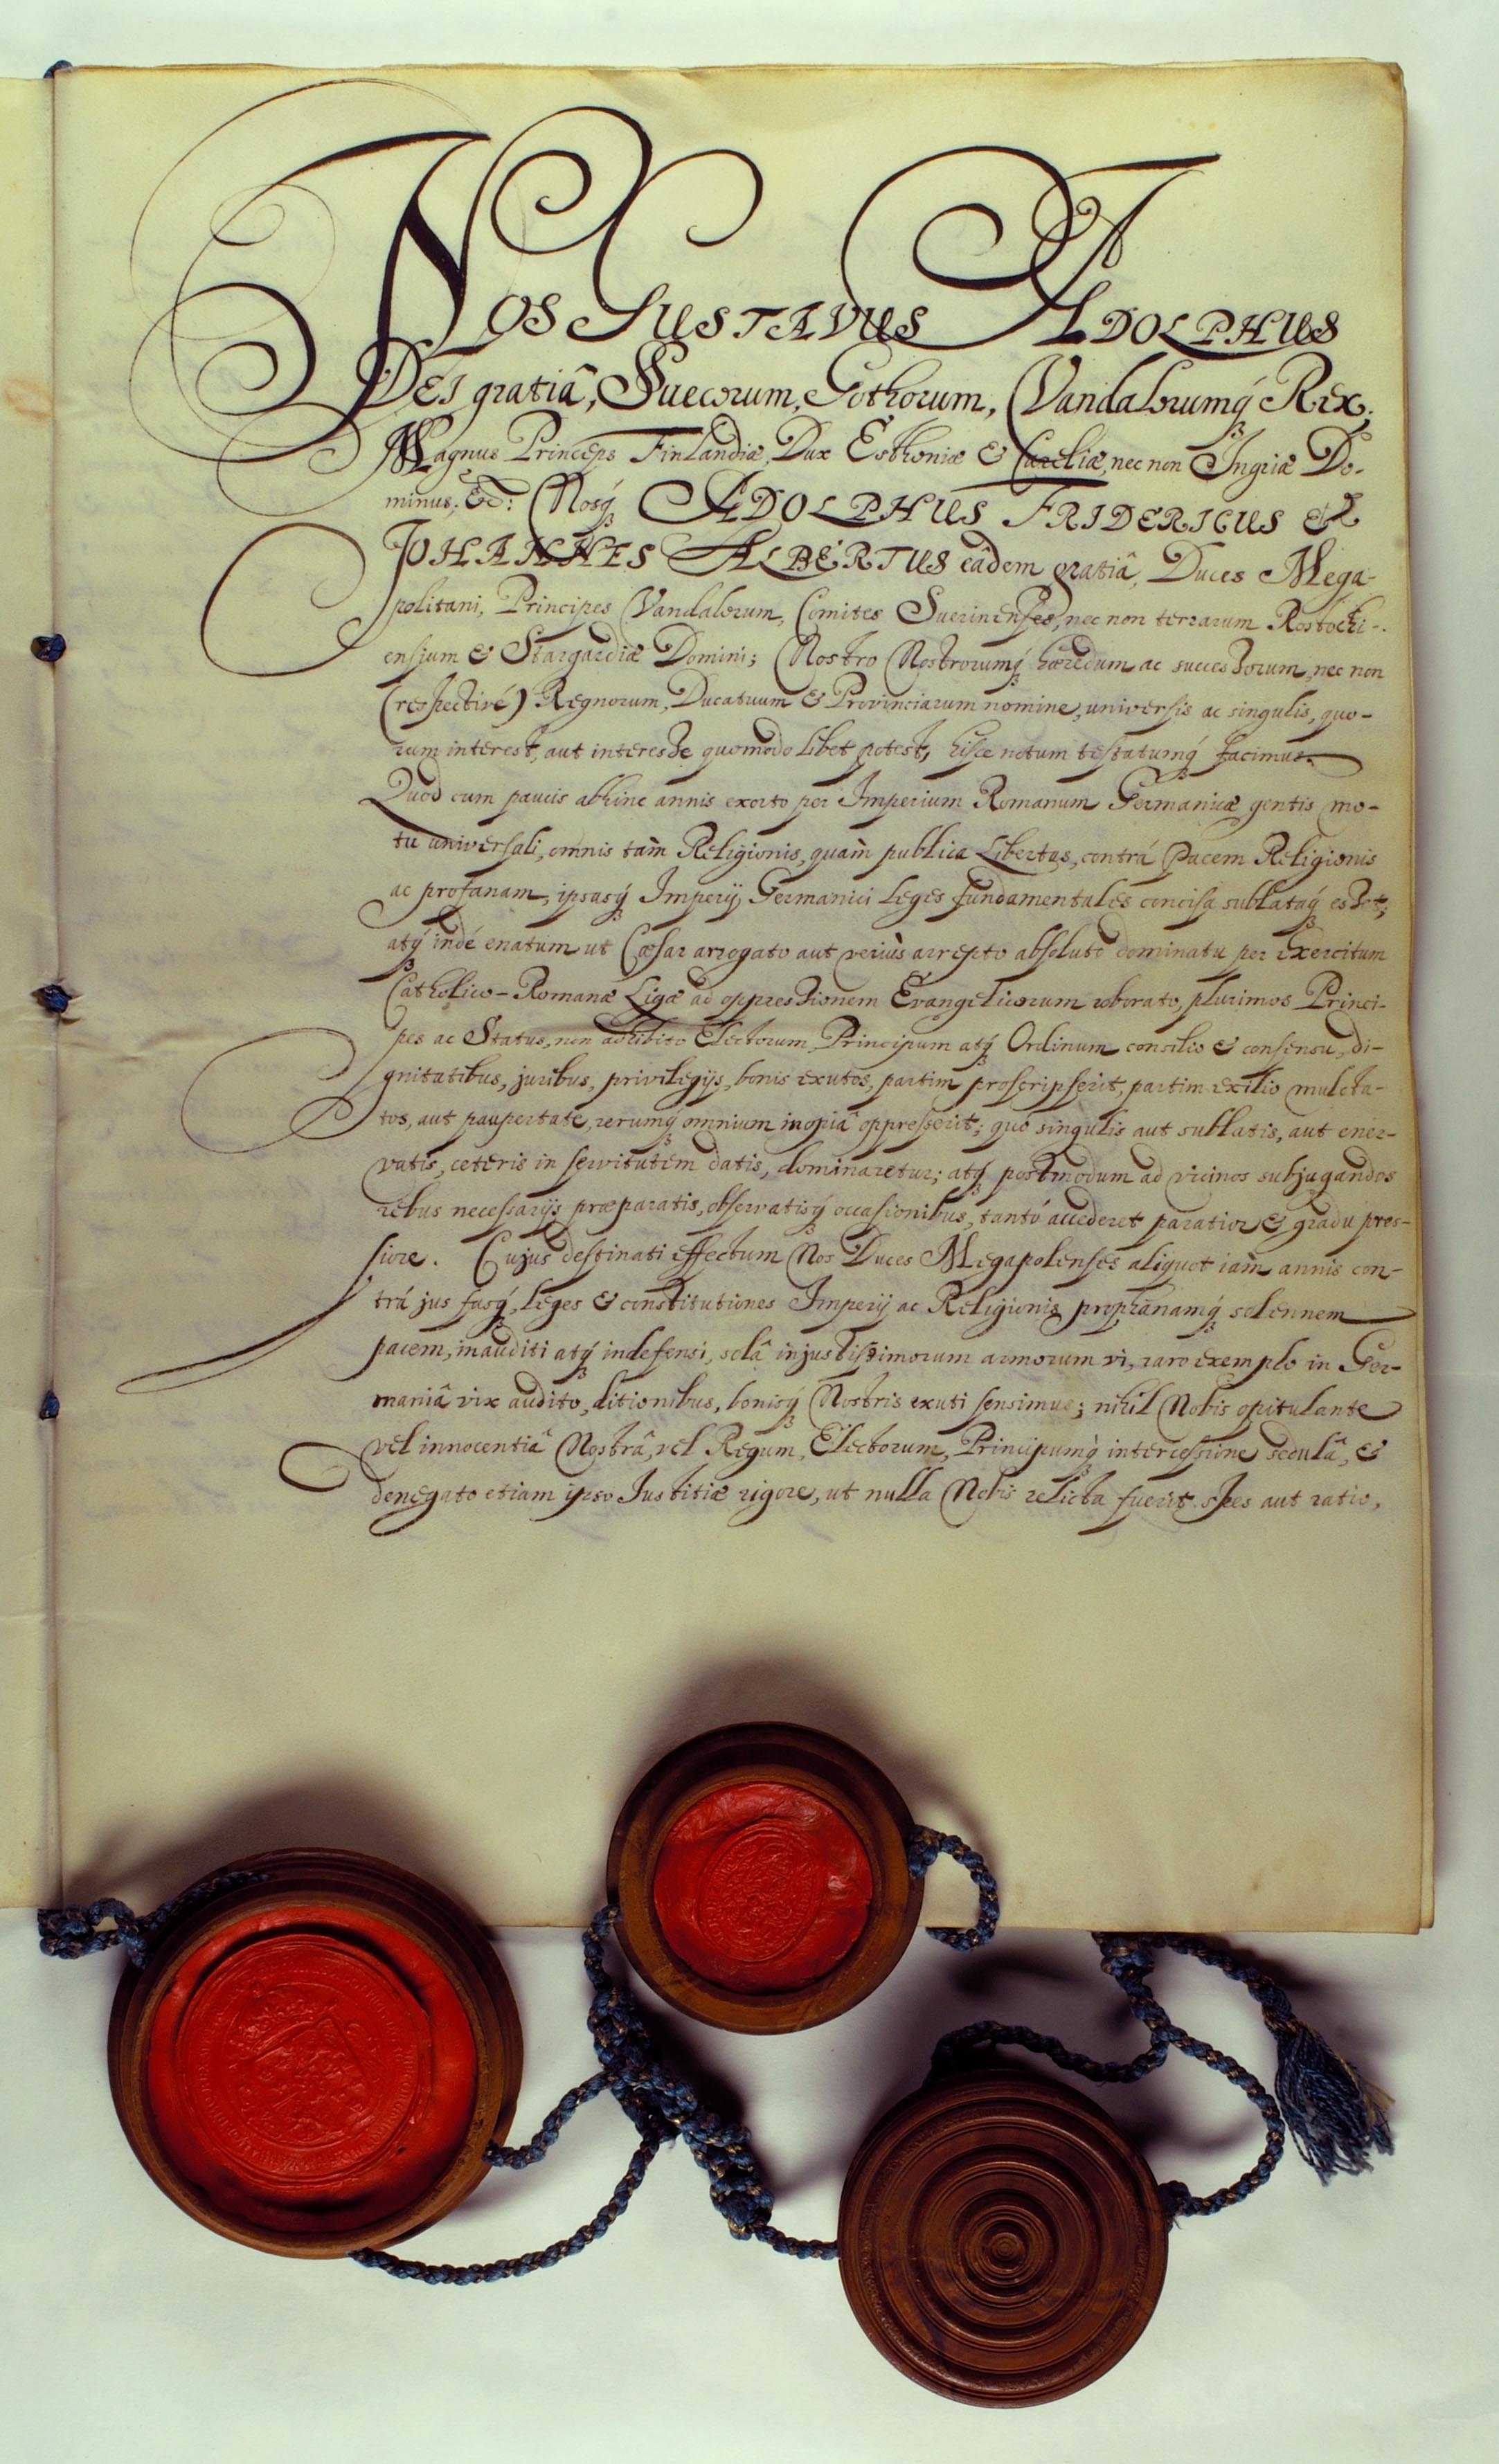 NOS GUSTAVUS ADOLPHUS
DEI gratiâ, Suecorum, Gothorum, Vandalorumq́ʒ Rex.
Magnus Princeps Finlandiæ, Dux Esthoniæ & Careliæ, nec non Ingriæ Do-
minus, &c: Nosq́ʒ ADOLPHUS FRIDERICUS et
JOHANNES ALBERTUS eâdem gratiâ, Duces Mega-
politani, Principes Vandalorum, Comites Suerinenses, nec non terrarum Rostochi-
ensium & Stargardiæ Domini; Nostro Nostrorumq́ʒ hæredum ac successorum, nec non
(respectivé) Regnorum, Ducatuum & Provinciarum nomine, universis ac singulis, quo-
rum interest, aut interesse quomodo libet potest, hisce notum testatumq́ʒ facimus.
Quod cum paucis abhinc annis exorto per Imperium Romanum Germanicæ gentis mo-
tu universali, omnis tam̀ Religionis, quam̀ publica Libertas, contrá Pacem Religionis
ac profanam, ipsasq́ʒ Imperij Germanici leges fundamentales concisa sublataq́ʒ esset;
atq́ʒ indé enatum ut Cæsar arrogato aut veriùs arrepto absoluto dominatu per Exercitum
Catholico-Romanæ Ligæ ad oppressionem Evangelicorum roborato, plurimos Princi-
pes ac Status, non adhibito Electorum, Principum atq́ʒ Ordinum consilio & consensu, di-
gnitatibus, juribus, privilegijs, bonis exutos, partim proscripserit, partim exilio mulcta-
tos, aut paupertate, rerumq́ʒ omnium inopiâ oppresserit; quò singulis aut sublatis, aut ener-
vatis, ceteris in servitutem datis, dominaretur; atq́ʒ postmodum ad vicinos subjugandos
rebus necessarijs præparatis, observatisq́ʒ occasionibus, tantó accederet paratior & gradu pres-
siore. Cujus destinati effectum Nos Duces Megapolenses aliquot iam̀ annis con-
trá jus fasq́ʒ, leges & constitutiones Imperij ac Religionis prophanamq́ʒ solennem
pacem, inauditi atq́ʒ indefensi, solâ injustissimorum armorum vi, raro exemplo in Ger-
maniâ vix audito, ditionibus, bonisq́ʒ Nostris exuti sensimus; nihil Nobis opitulante
vel innocentiâ Nostrâ, vel Regum, Electorum, Principumq́ʒ intercessione sedulâ, &
denegato etiam ipso Justitiæ rigore, ut nulla Nobis relicta fuerit spes aut ratio,